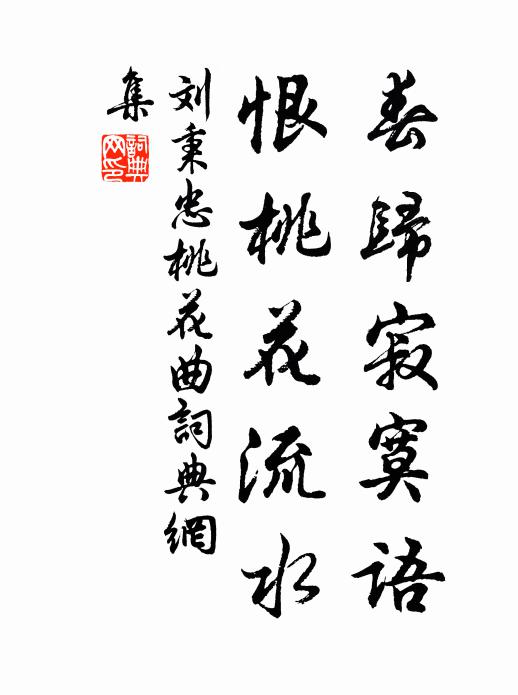 春歸寂寞語
恨桃花流水
刘秉忠桃花曲詞典網
集
詞典
网印